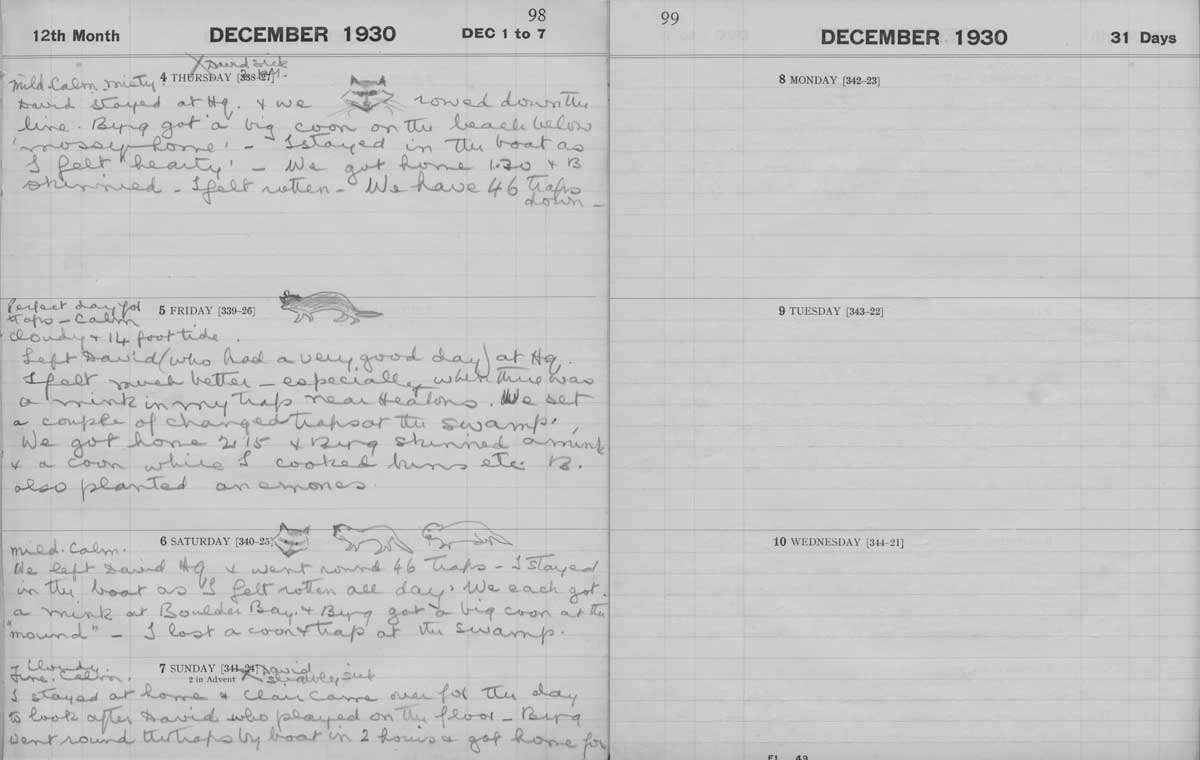 98
12th Month DECEMBER 1930 DEC 1 to 7
X David sick
Mild. Calm misty 4 THURSDAY [338-27]
David stayed at Hq. & we rowed down the
line. Byrg got a big coon on the beach below
'mossyhome' - I stayed in the boat as
I felt 'hearty' - We got home 1.30 & B
skinned - I felt rotten - We have 46 traps
down -
Perfect day for
traps - Calm 5 FRIDAY [339-26]
cloudy & 14 foot tide.
Left David (who had a very good day) at Hq.
I felt much better - especially when there was
a mink in my trap near Heatons. We set
a couple of changed traps at the swamp.
We got home 2.15 & Byrg skinned a mink
& a coon while I cooked buns etc B.
also planted anemones.
6 SATURDAY [340-25]
Mild. Calm.
We left David HQ & went round 46 traps - I stayed
in the boat as I felt rotten all day. We each got
a mink at Boulder Bay & Byrg got a big coon at the
"mound" - I lost a coon & trap at the swamp.
Cloudy. 7 SUNDAY [341-24] X David
Fine. Calm. 2 in Advent slightly sick
I stayed at home & Clair came over for the day
to look after David who played on the floor - Byrg
went round the traps by boat in 2 hours & got home for
99
DECEMBER 1930 31 Days
8 MONDAY [342-23]
9 TUESDAY [343-22]
10 WEDNESDAY [344-21]
F1 49